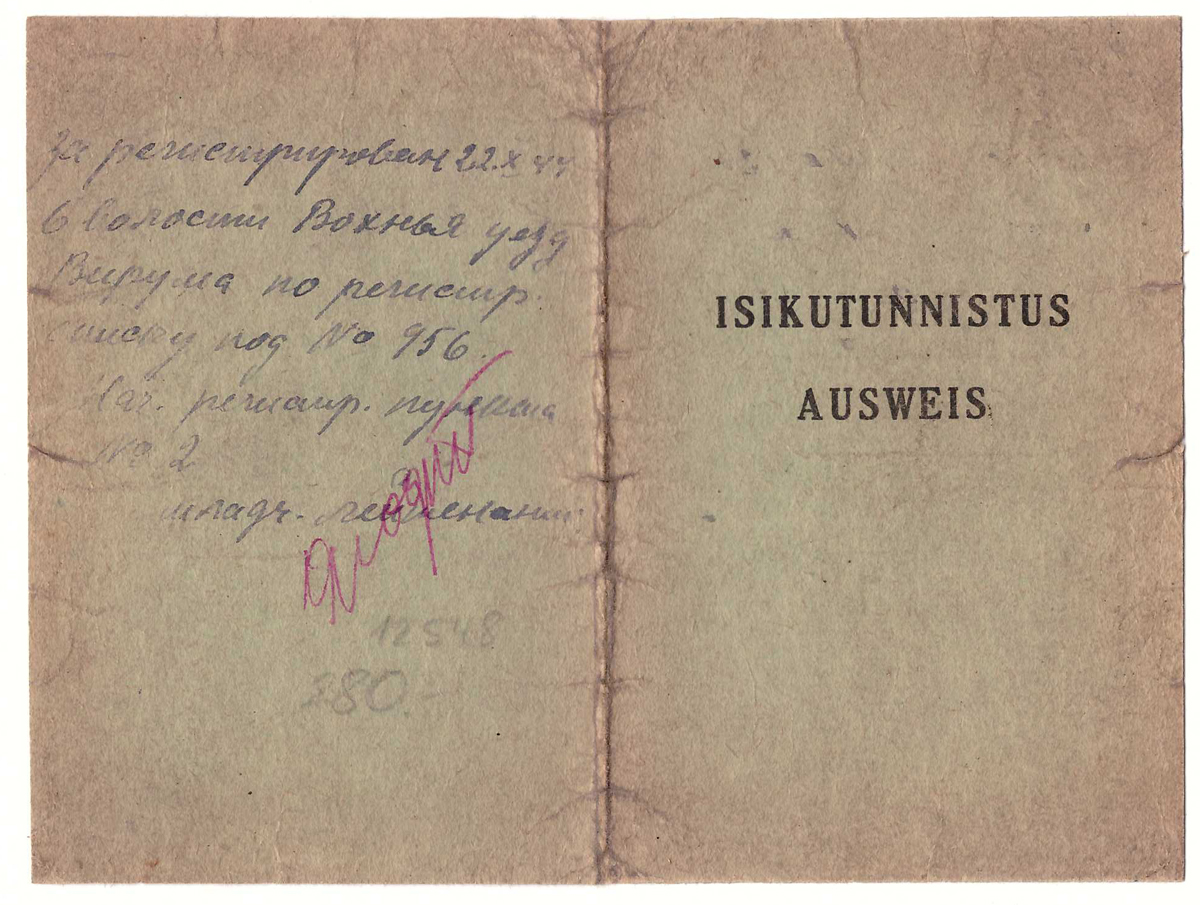 За регистрирован 22.X 44
в волости Вохнья уезд
Вирума по регистр.
списку под No 956.
Нач. регистр. пункта
No 2
младч. лейтенант
12548
280.-
ISIKUTUNNISTUS
AUSWEIS